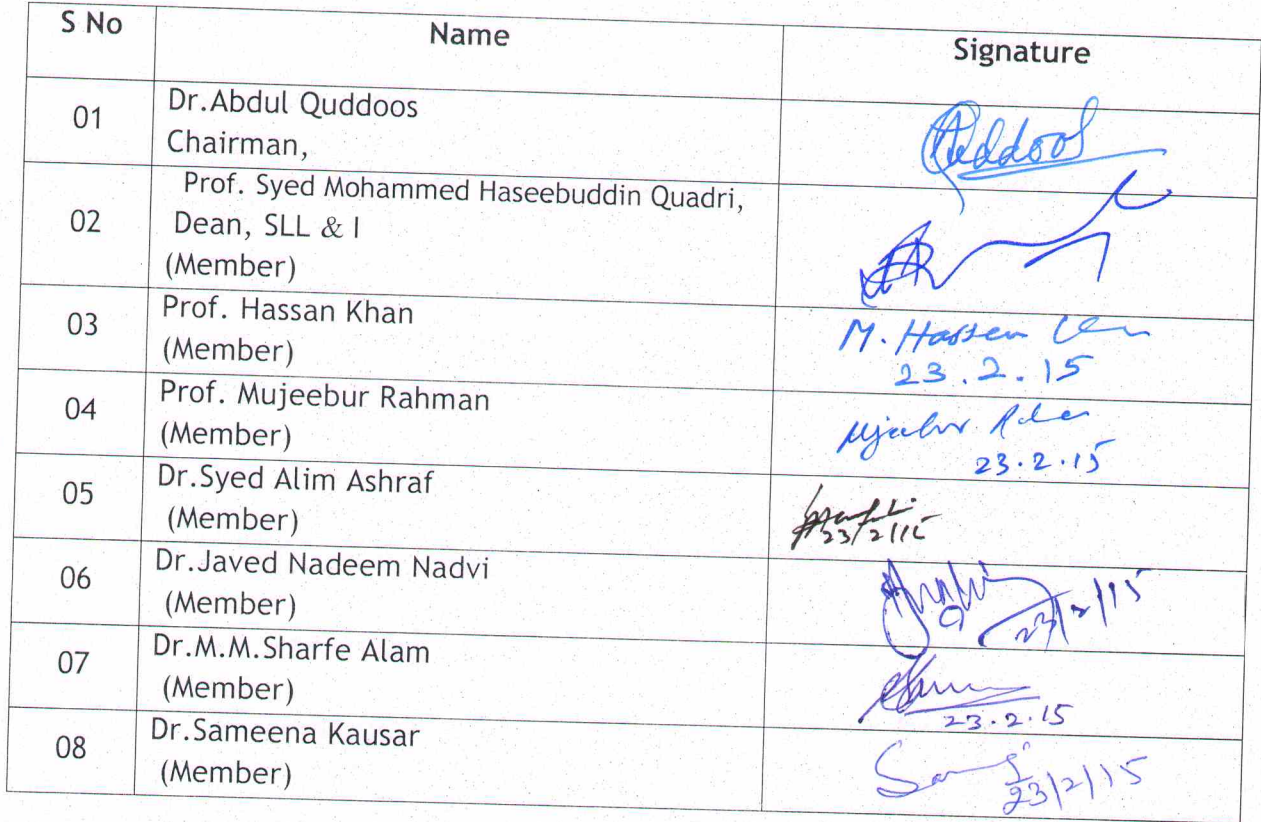 S No Name Signature
01 Dr.Abdul Quddoos
Chairman,
Quddoos
02 Prof. Syed Mohammed Haseebuddin Quadri,
Dean, SLL & I
(Member)
03 Prof. Hassan Khan
(Member)
M. Hassan
23.2.15
04 Prof. Mujeebur Rahman
(Member)
23.2.15
05 Dr.Syed Alim Ashraf
(Member)
23/2/15
06 Dr.Javed Nadeem Nadvi
(Member)
23/2/15
07 Dr.M.M.Sharfe Alam
(Member)
23.2.15
08 Dr.Sameena Kausar
(Member)
23/2/15